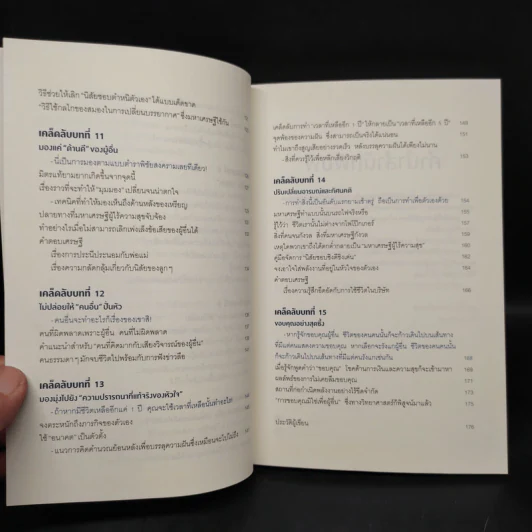 วิธีช่วยให้เลิก "นิสัยชอบตำหนิตัวเอง" ได้แบบเด็ดขาด
"วิธีใช้กลไกของสมองในการเปลี่ยนบรรยากาศ" ซึ่งมหาเศรษฐีใช้กัน
เคล็ดลับบทที่ 11
มองแค่ "ด้านดี" ของผู้อื่น
- นี่เป็นการมองตามแบบตำราพิชัยสงครามเลยทีเดียว!
มิตรแท้ยามยากเกิดขึ้นจากจุดนี้
เรื่องราวที่จะทำให้ "มุมมอง" เปลี่ยนจนน่าสกใจ
- เทคนิคที่ทำให้มองเห็นถึงด้านหลังของเหรียญ
ปลายทางที่มหาเศรษฐีผู้ไร้ความสุขจับจ้อง
ทำอย่างไรเมื่อไม่สามารถเลิกเพ่งเล็งข้อเสียของผู้อื่นได้
คำตอบเศรษฐี
เรื่องการประนีประนอมกับพ่อแม่
เรื่องความกลัดกลุ้มเกี่ยวกับนิสัยของลูกๆ
เคล็ดลับบทที่ 12
ไม่ปล่อยให้ "คนอื่น" ปั่นหัว
- คนอื่นจะทำอะไรก็เรื่องของเขาสิ!
คนที่ผิดพลาดเพราะผู้อื่น คนที่ไม่ผิดพลาด
คำแนะนำสำหรับ "คนที่คิดมากกับเสียงวิจารณ์ของผู้อื่น"
คนธรรมดาๆ มักจบชีวิตไปพร้อมกับการฟังข่าวลือ
เคล็ดลับบทที่ 13
มองมุ่งไปยัง "ความปรารถนาที่แท้จริงของหัวใจ"
- ถ้าหากมีชีวิตเหลืออีกแค่ 1 ปี คุณจะใช้เวลาที่เหลือนั้นทำอะไร
จงตระหนักถึงภารกิจของตัวเอง
ใช้ "อนาคต" เป็นตัวตั้ง
- แนวการคิดคำนวณย้อนหลังเพื่อบรรลุความฝันซึ่งเหมือนจะไปไม่ถึง
เคล็ดลับการทำ "เวลาที่เหลืออีก 1 ปี" ให้กลายเป็น "เวลาที่เหลืออีก 4 ปี" 150
จุดพ้องของความฝัน ซึ่งสามารถเป็นจริงได้แน่นอน 151
ทำไมเขาถึงสูญเสียอย่างรวดเร็ว หลังบรรลุความฝันได้เพียงไม่นาน
- สิ่งที่ควรรู้ไว้เพื่อหลีกเลี่ยงวิกฤติ
เคล็ดลับบทที่ 14
ปรับเปลี่ยนอารมณ์และทัศนคติ
- การทำสิ่งนี้เป็นอันดับแรกยามเช้าตรู่ ถือเป็นการทำเพื่อตัวเองด้วย
มหาเศรษฐีทำแบบนั้นบนรถไฟจริงหรือ
รู้ไว้ว่า ชีวิตเรานั้นไม่ต่างจากไพ่โป๊กเกอร์
สิ่งที่คนจนกังวล สิ่งที่มหาเศรษฐีกังวล
เหตุใดพวกเขาถึงได้ตกต่ำกลายเป็น "มหาเศรษฐีผู้ไร้ความสุข"
คู่มือจัดการ "นิสัยชอบชิงดีชิงเด่น"
จงเอาใจใส่พลังงานที่อยู่ในหัวใจของตัวเอง
คำตอบเศรษฐี
เรื่องความรู้สึกอึดอัดกับการใช้ชีวิตในบริษัท 166
เคล็ดลับบทที่ 15
ขอบคุณอย่างสุดซึ้ง
- หากรู้จักขอบคุณผู้อื่น ชีวิตของคนคนนั้นก็จะก้าวเดินไปบนเส้นทาง
ที่มีแต่คนแสดงความขอบคุณ หากเลือกจะรังแกผู้อื่น ชีวิตของคนคนนั้น
ก็จะก้าวเดินไปบนเส้นทางที่มีแต่คนรังแกเช่นกัน 168
เมื่อรู้จักพูดคำว่า "ขอบคุณ" โชคด้านการเงินและความสุขก็จะเข้ามาหา
ผลลัพธ์ของการไม่เคยลืมขอบคุณ
สถานที่กักเก็บพลังงานอย่างไร้ขีดจำกัด
"การขอบคุณมิใช่เพื่อผู้อื่น" ซึ่งทางวิทยาศาสตร์ก็พิสูจน์มาแล้ว 175
ประวัติผู้เขียน 176